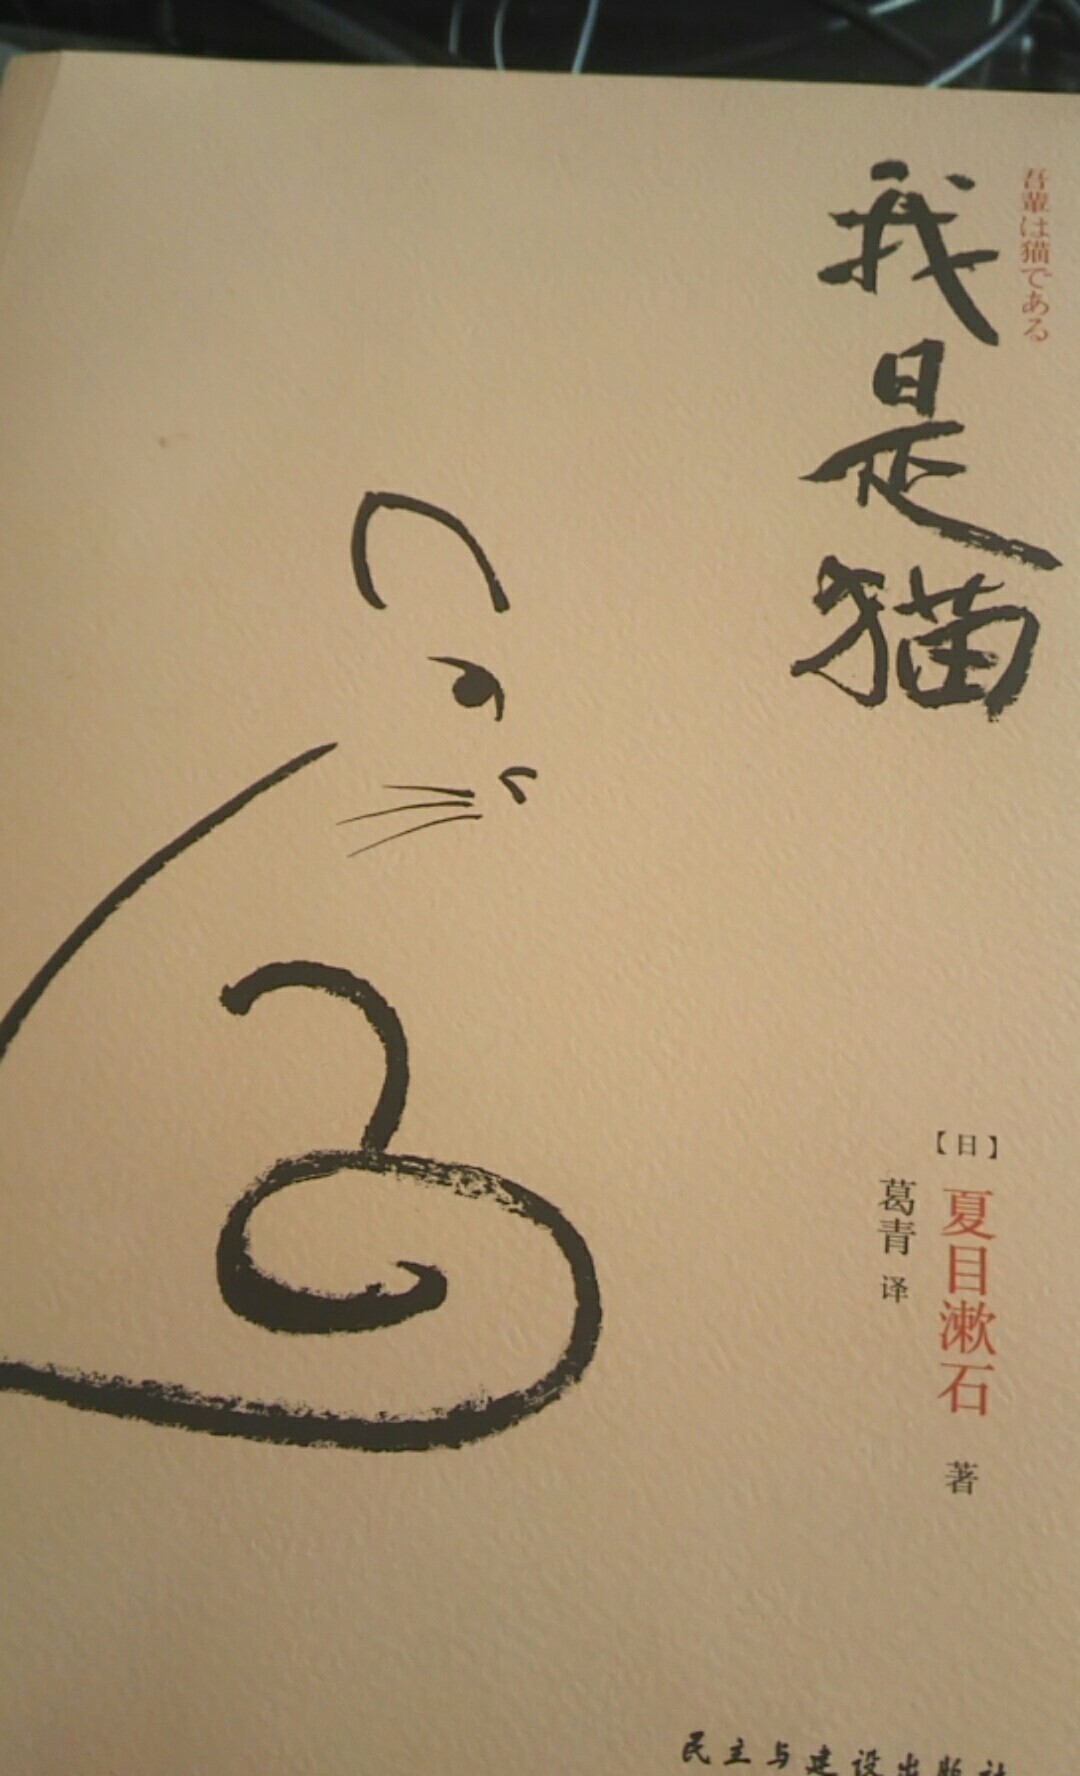 吾輩は猫である
我是猫
【日】夏目漱石 著
葛青 译
民主与建设出版社